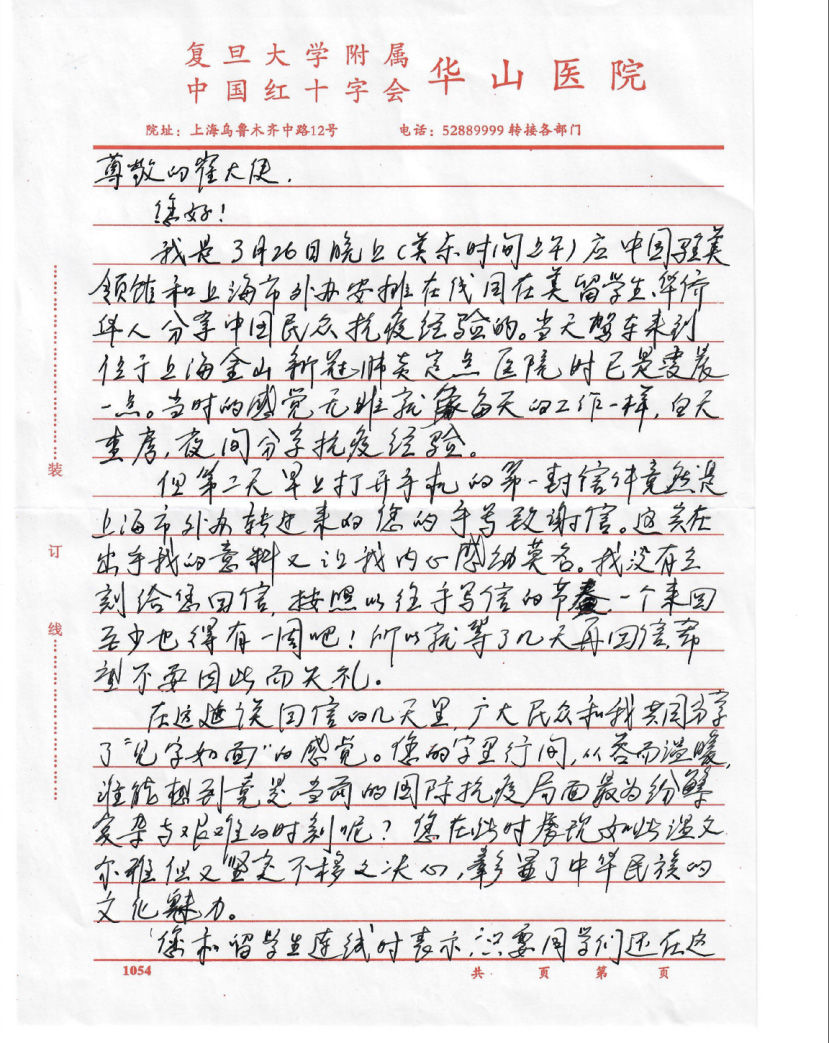 复旦大学附属
中国红十字会 华山医院
院址：上海乌鲁木齐中路12号 电话：52889999 转接各部门
尊敬的崔大使.
您好！
我是3月26日晚上(美东时间上午)应中国驻美
领馆和上海市外办安排在线同在美留学生、华侨
华人分享中国民众抗疫经验的。当天驾车来到
位于上海金山新冠肺炎定点医院时已是凌晨
一点。当时的感觉无非就像每天的工作一样,白天
查房,夜间分享抗疫经验。
但第二天早上打开手机的第一封信件竟然是
上海市外办转过来的您的手写致谢信。这实在
出乎我的意料又让我内心感动莫名。我没有立
刻给您回信,按照以往手写信的节奏,一个来回
至少也得有一周吧！所以就等了几天再回信,希
望不要因此而失礼。
在这延误回信的几天里,广大民众和我共同分享
了“见字如面”的感觉。您的字里行间,从容而温暖,
谁能想到竟是当前的国际抗疫局面最为纷繁
复杂与艰难的时刻呢？您在此时展现如此温文
尔雅但又坚定不移之决心,彰显了中华民族的
文化魅力。
您和留学生连线时表示,只要同学们还在这
装
订
线
1054 共 页 第 页